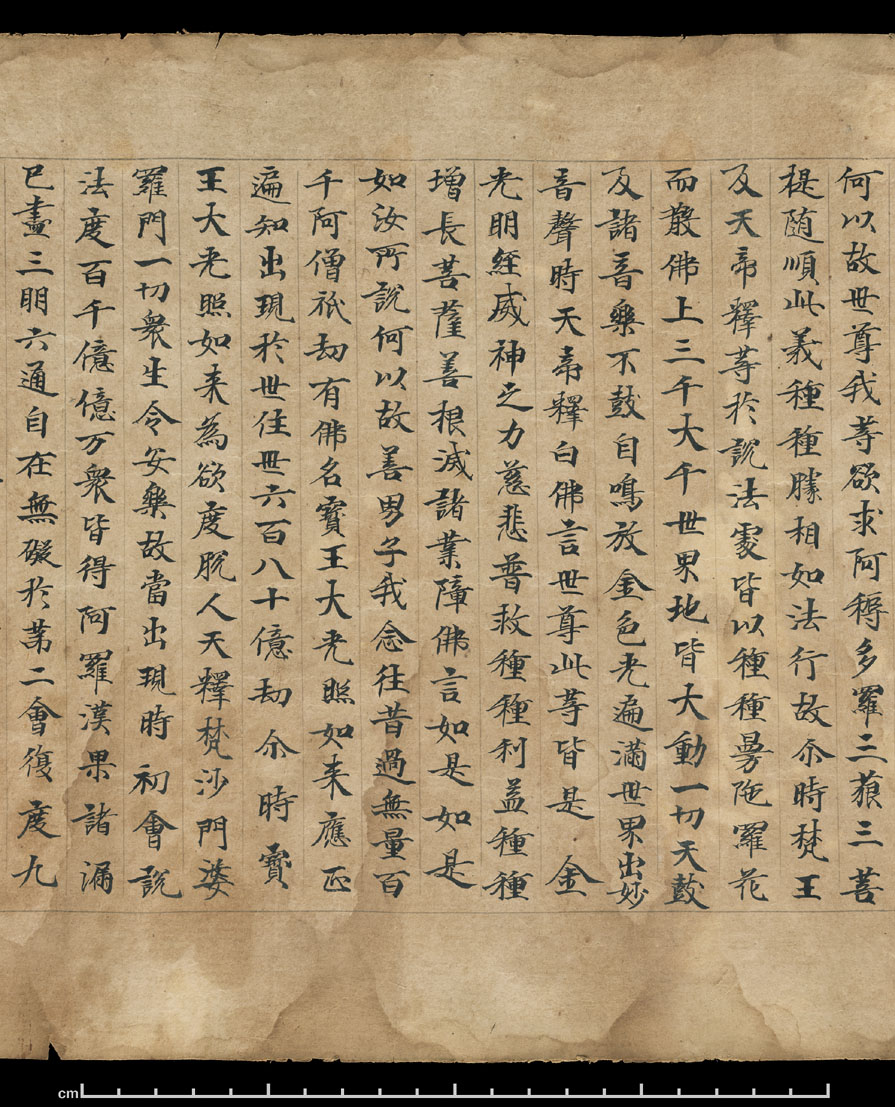 何以故世尊我等欲求阿耨多羅三藐三菩
提随順此義種種勝相如法行故尒時梵王
及天帝釋等於說法處皆以種種曼陁羅花
而散佛上三千大千世界地皆大動一切天鼓
及諸音樂不鼓自鳴放金色光遍滿世界出妙
音聲時天帝釋白佛言世尊此等皆是金
光明經威神之力慈悲普救種種利益種種
增長菩薩善根滅諸業障佛言如是如是
如汝所說何以故善男子我念往昔過無量百
千阿僧祇劫有佛名寶王大光照如来應正
遍知出現於世住世六百八十億劫尒時寶
王大光照如来為欲度脫人天釋梵沙門婆
羅門一切衆生令安樂故當出現時初會說
法度百千億億万衆皆得阿羅漢果諸漏
已盡三明六通自在無礙於苐二會復度九
cm